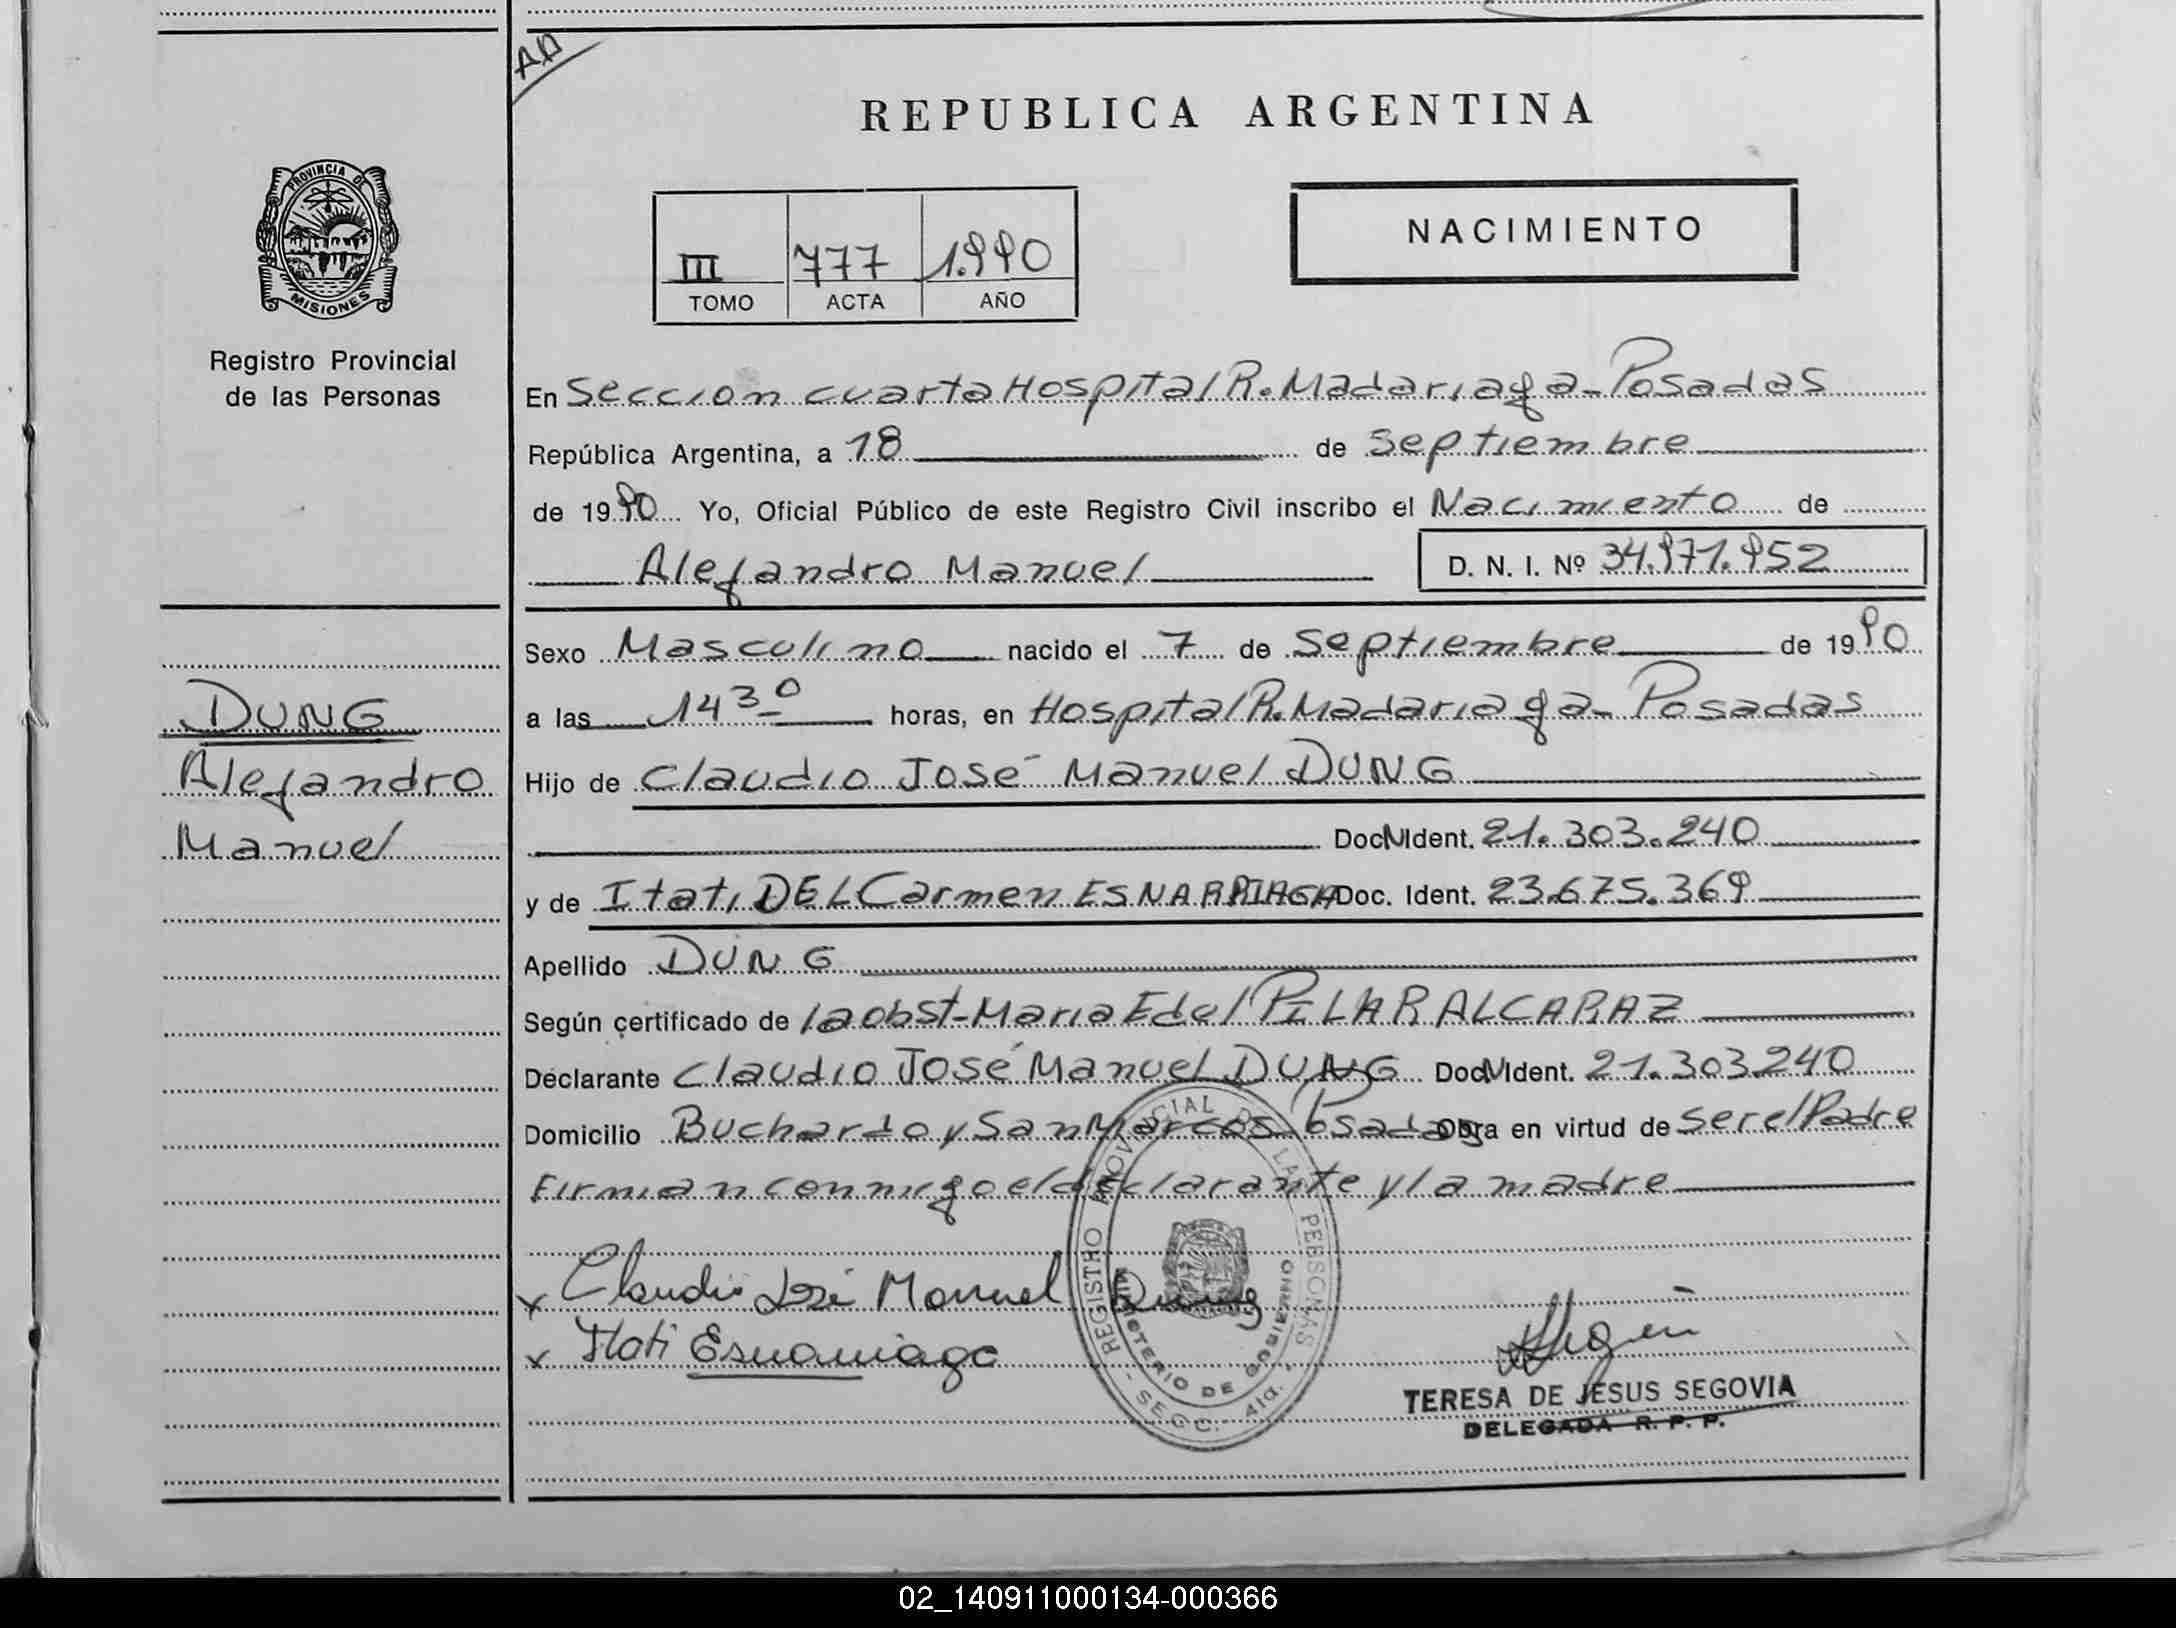 AD
REPUBLICA ARGENTINA
PROVINCIA DE
MISIONES
Registro Provincial
de las Personas
III 777 1.990
TOMO ACTA AÑO
NACIMIENTO
En Seccion cuarta Hospital R. Madariaga - Posadas
República Argentina, a 18 de Septiembre
de 1990 Yo, Oficial Público de este Registro Civil inscribo el Nacimiento de
Alejandro Manuel D. N. I. Nº 34.971.952
DUNG
Alejandro
Manuel
Sexo Masculino nacido el 7 de Septiembre de 1990
a las 14 30 horas, en Hospital R. Madariaga - Posadas
Hijo de Claudio José Manuel DUNG
Doc. Ident. 21.303.240
y de Itati DEL Carmen ESNARRIAGA Doc. Ident. 23.675.369
Apellido DUNG
Según certificado de la obst - Maria E del PILAR ALCARAZ
Declarante Claudio José Manuel DUNG Doc. Ident. 21.303.240
Domicilio Buchardo y San Marcos - Posadas Obra en virtud de ser el Padre
Firman conmigo el declarante y la madre
x Claudio José Manuel Dung
x Itati Esnarriaga
REGISTRO PROVINCIAL DE LAS PERSONAS
MINISTERIO DE GOBIERNO
- SECC. 4ta. -
TERESA DE JESUS SEGOVIA
DELEGADA R. P. P.
02_140911000134-000366